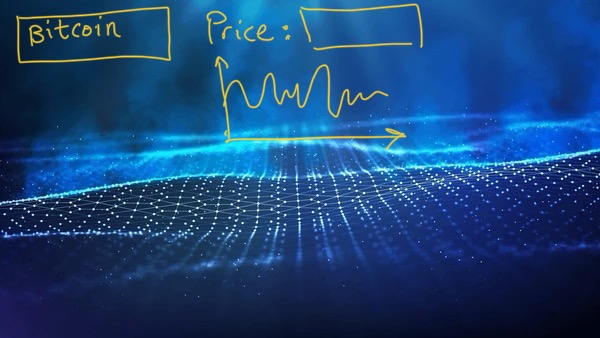 Bitcoin Price: